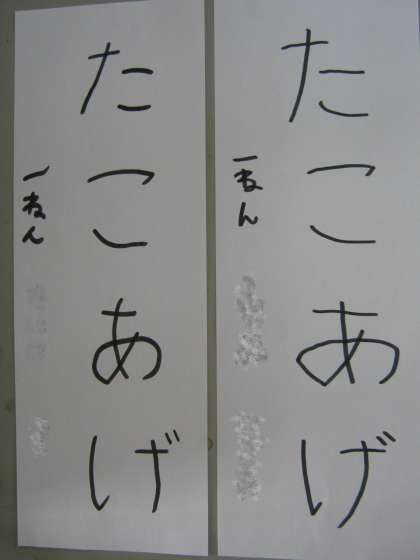 たこあげ
一ねん
たこあげ
一ねん